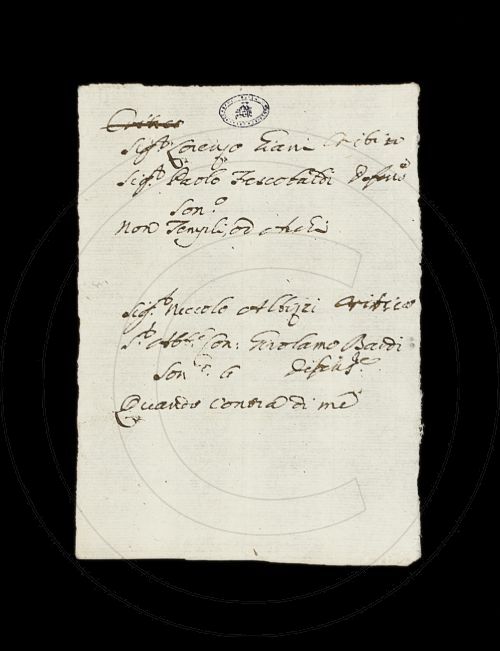 Critico
Sig.r Lorenzo Giani Critico
Sig.r Paolo Frescobaldi Defens.e
Son.o
Non Templi, od Archi
Sig.r Niccolo Albizi Critico
S.r Abb.e Con: Girolamo Bardi
Son.o 6 Defens.e
Quando contra di me